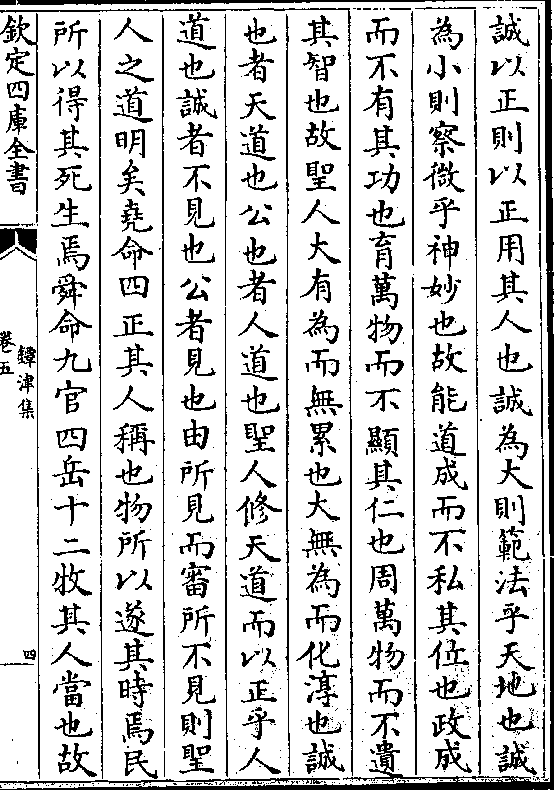 誠以正則以正用其人也誠為大則範法乎天地也誠
為小則察微乎神妙也故能道成而不私其位也政成
而不有其功也育萬物而不顯其仁也周萬物而不遺
其智也故聖人大有為而無累也大無為而化淳也誠
也者天道也公也者人道也聖人修天道而以正乎人
道也誠者不見也公者見也由所見而審所不見則聖
人之道明矣堯命四正其人稱也物所以遂其時焉民
所以得其死生焉舜命九官四岳十二牧其人當也故
欽定四庫全書
鐔津集
卷五
四